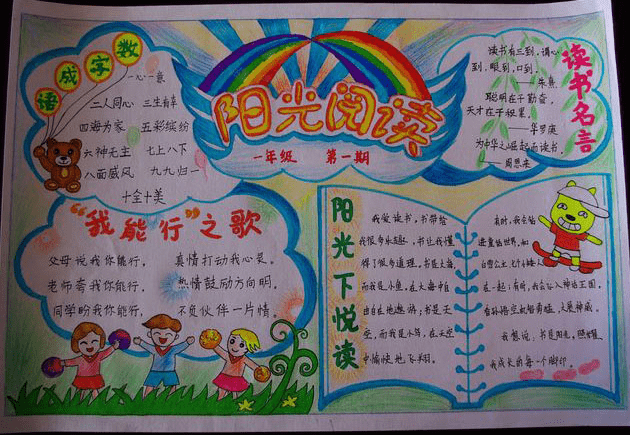 数字成语
一心一意
二人同心 三生有幸
四海为家 五彩缤纷
六神无主 七上八下
八面威风 九九归一
十全十美
阳光阅读
一年级 第一期
读书名言
读书有三到,谓心
到,眼到,口到。
——朱熹
聪明在于勤奋,
天才在于积累。
——华罗庚
为中华之崛起而读书。
——周恩来
“我能行”之歌
父母说我你能行, 真情打动我心灵。
老师夸我你能行, 热情鼓励方向明。
同学盼我你能行, 不负伙伴一片情。
阳光下悦读
我爱读书,书带给
我很多乐趣,书让我懂
得了很多道理。书是大海,
而我是小鱼,在大海中自
由自在地遨游;书是天
空,而我是小鸟,在天空
中愉快地飞翔。
有时,我会钻
进童话世界,和
白雪公主、七个小矮人
在一起;有时,我会 入神话王国,
看孙悟空 大发神威。
我想说,书是阳光,照耀
我成长的每一个脚印。